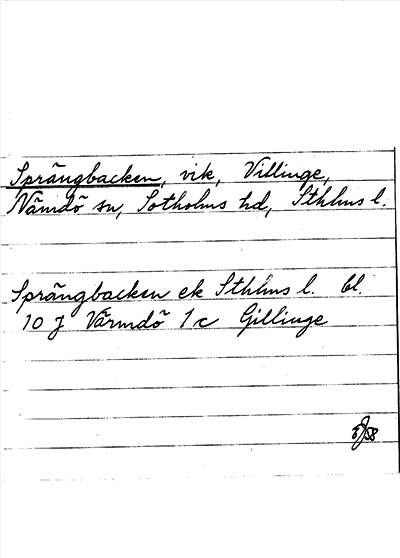 Sprängbacken, vik, Villinge,
Nämdö sn, Sotholms hd, Sthlms l.
Sprängbacken ek Sthlms l. bl.
10 J Värmdö 1 c Gillinge